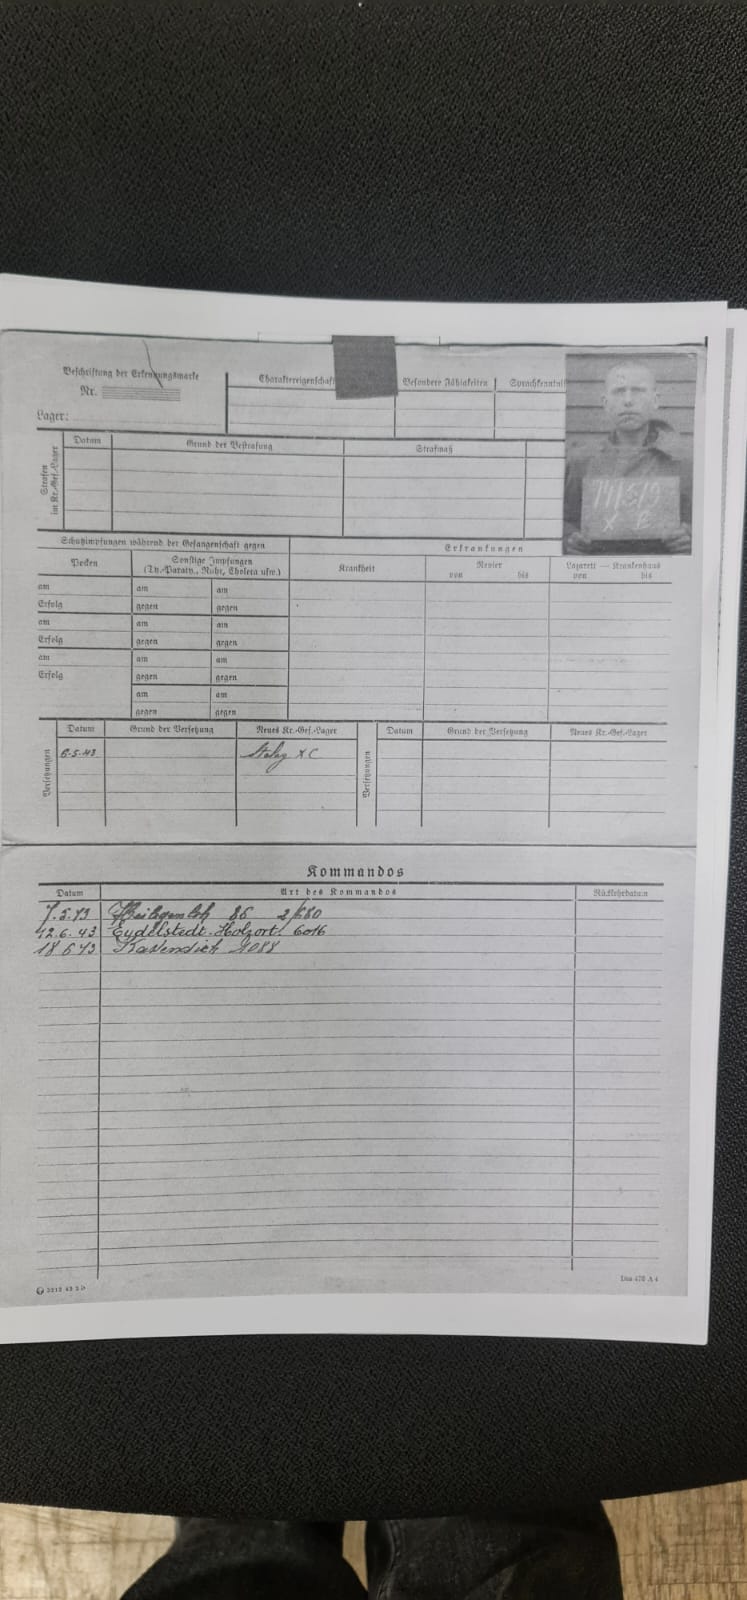 Beschriftung der Erkennungsmarke
Nr.
Lager:
Charaktereigenschaft
Besondere Fähigkeiten
Sprachkenntnis
Strafen
im Kr.-Gef.-Lager
Datum
Grund der Bestrafung
Strafmaß
X B
Schutzimpfungen während der Gefangenschaft gegen
Erkrankungen
Pocken
Sonstige Impfungen
(Ty.-Paraty., Ruhr, Cholera usw.)
Krankheit
Revier
von bis
Lazarett — Krankenhaus
von bis
am am am
Erfolg gegen gegen
am am am
Erfolg gegen gegen
am am am
Erfolg gegen gegen
am am
gegen gegen
Versetzungen
Datum Grund der Versetzung Neues Kr.-Gef.-Lager
6.5.43 Stalag X C
Versetzungen
Datum Grund der Versetzung Neues Kr.-Gef.-Lager
Kommandos
Datum Art des Kommandos Rückkehrdatum
7.5.43 Heiligenloh 86
12.6.43 Eydelstedt-Holzort 6016
18 6 43 1088
Din 476 A 4